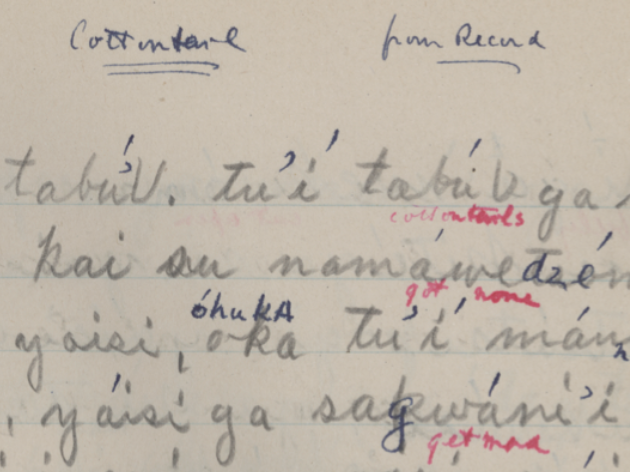 Cottontail from Record
tabú'U. tu'í' tabú'U ga
cottontails
kai su namáwedzé
got none
óhukA
yaisi, oka tu'í' mán
, yáisi ga sagwáni'i
get mad